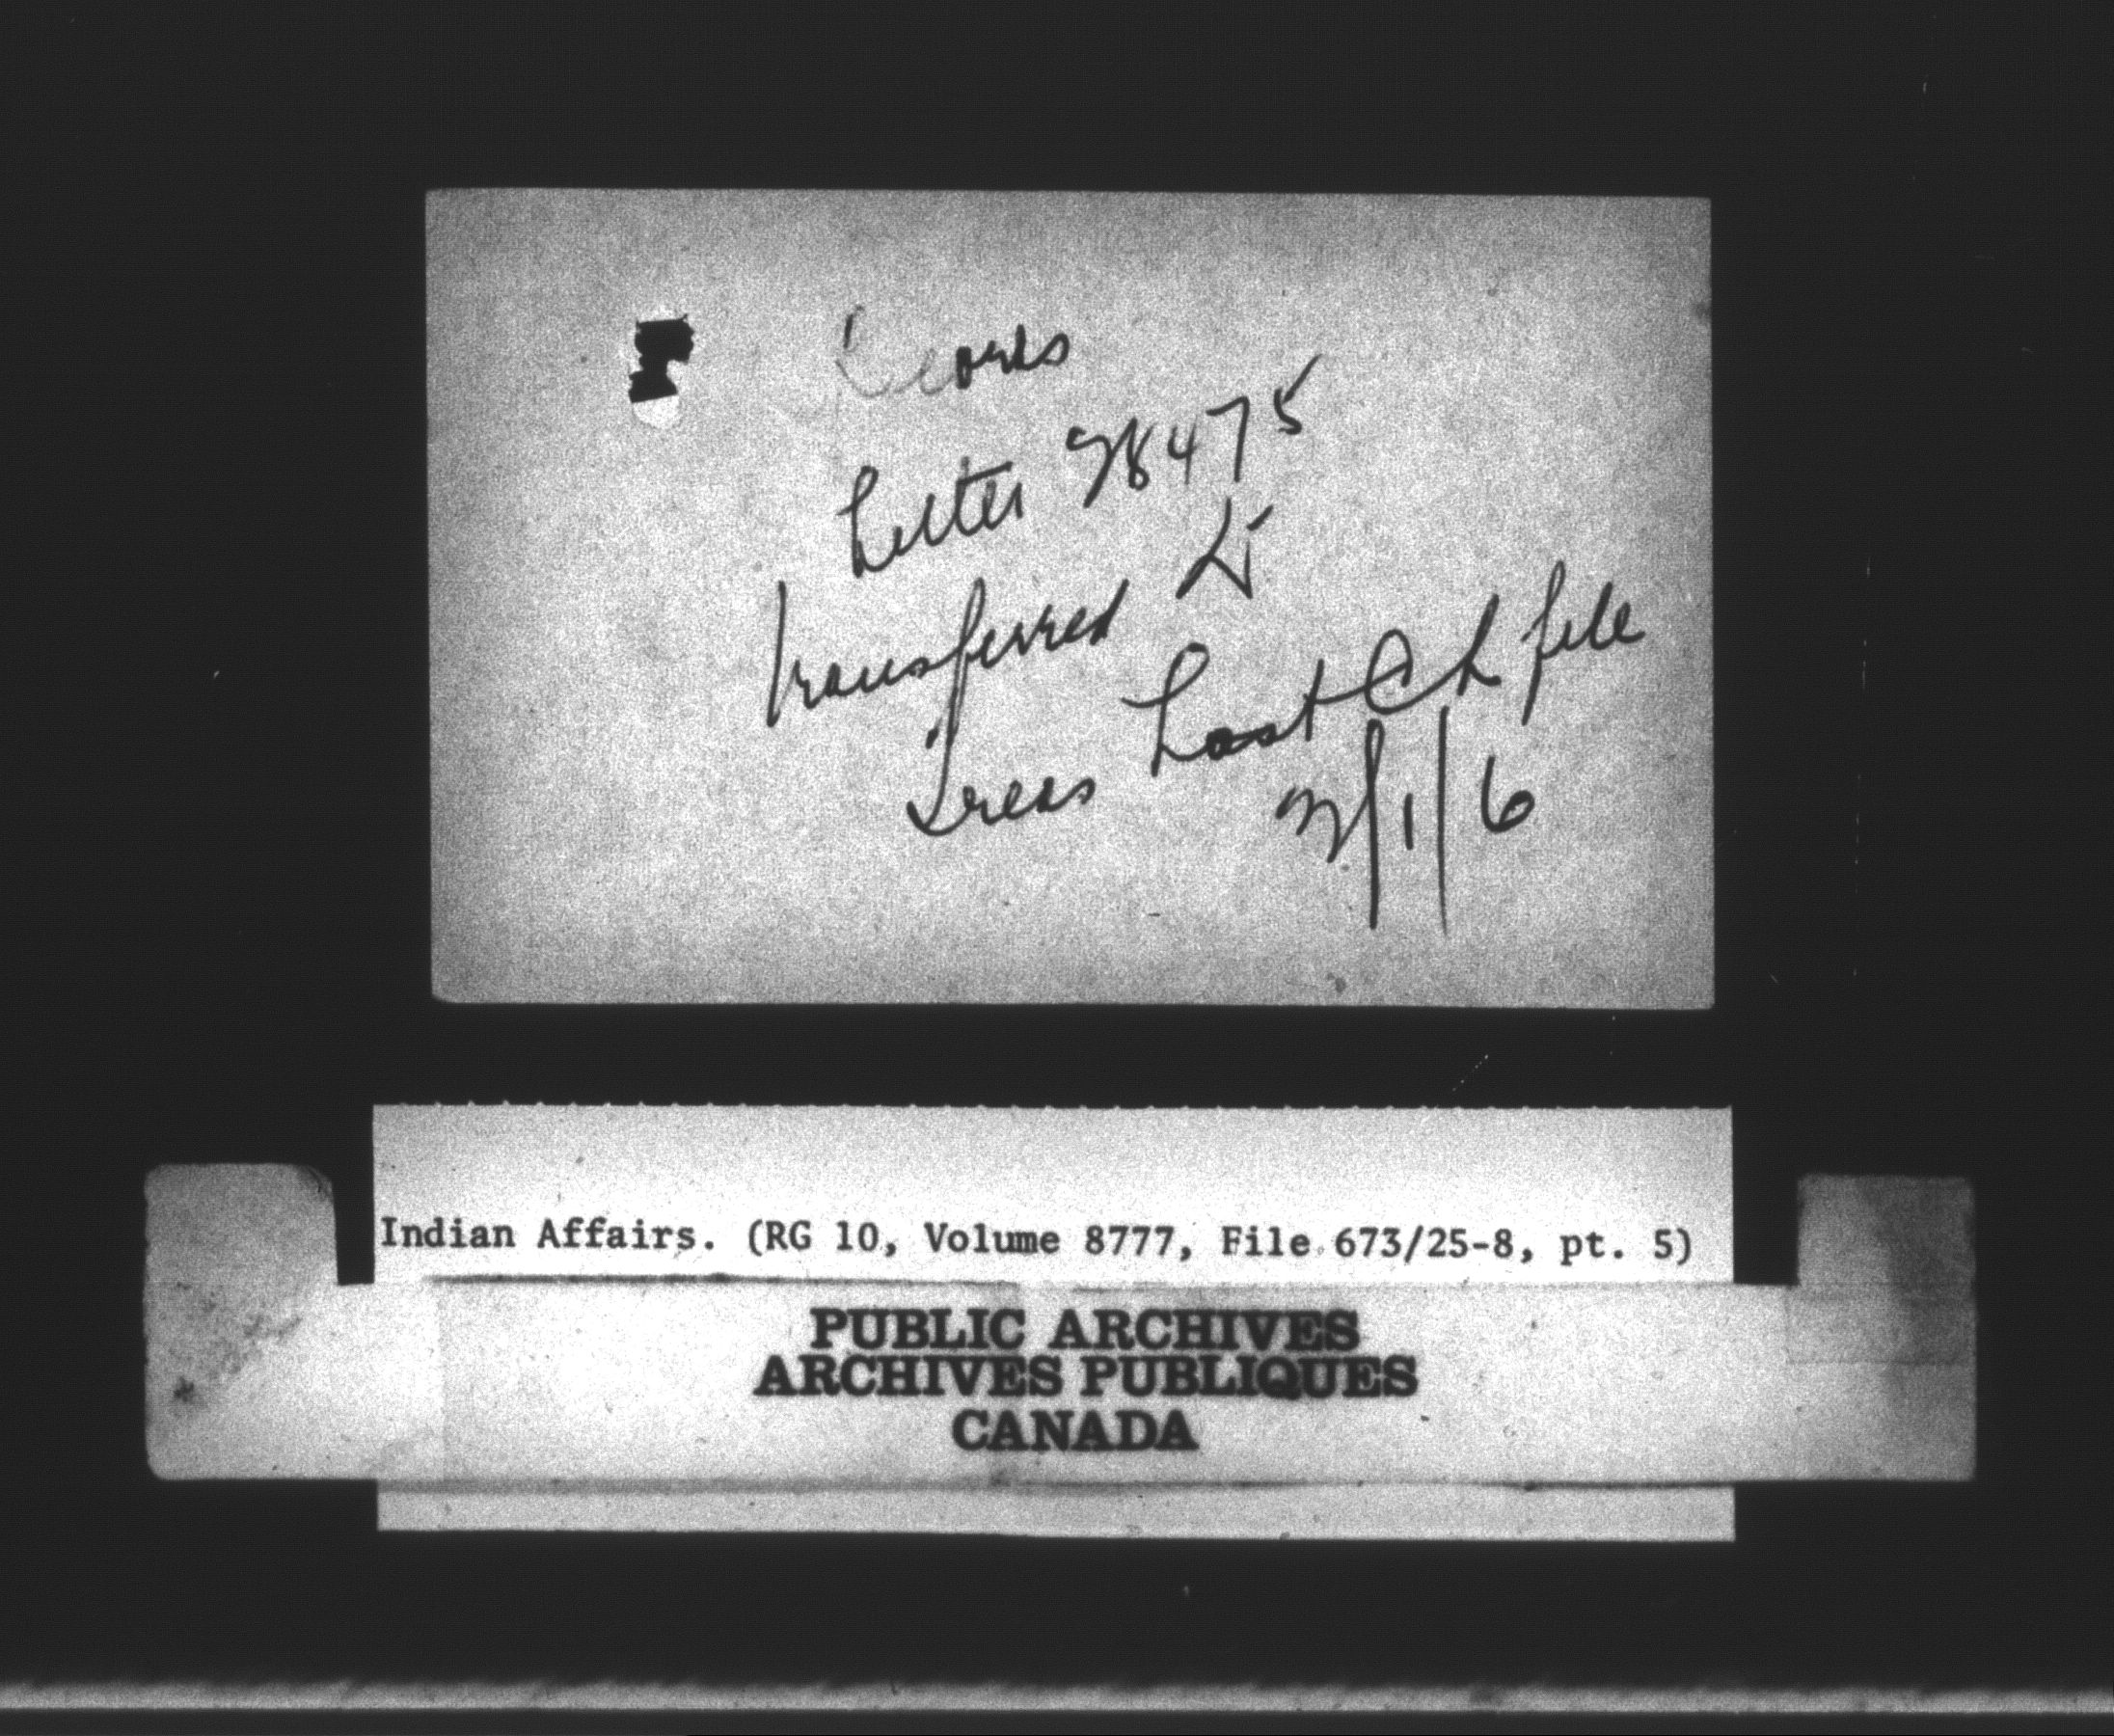 Letter 28475
transferred to
Trees Last Ch file
2/1/6
Indian Affairs. (RG 10, Volume 8777, File 673/25-8, pt. 5)
PUBLIC ARCHIVES
ARCHIVES PUBLIQUES
CANADA